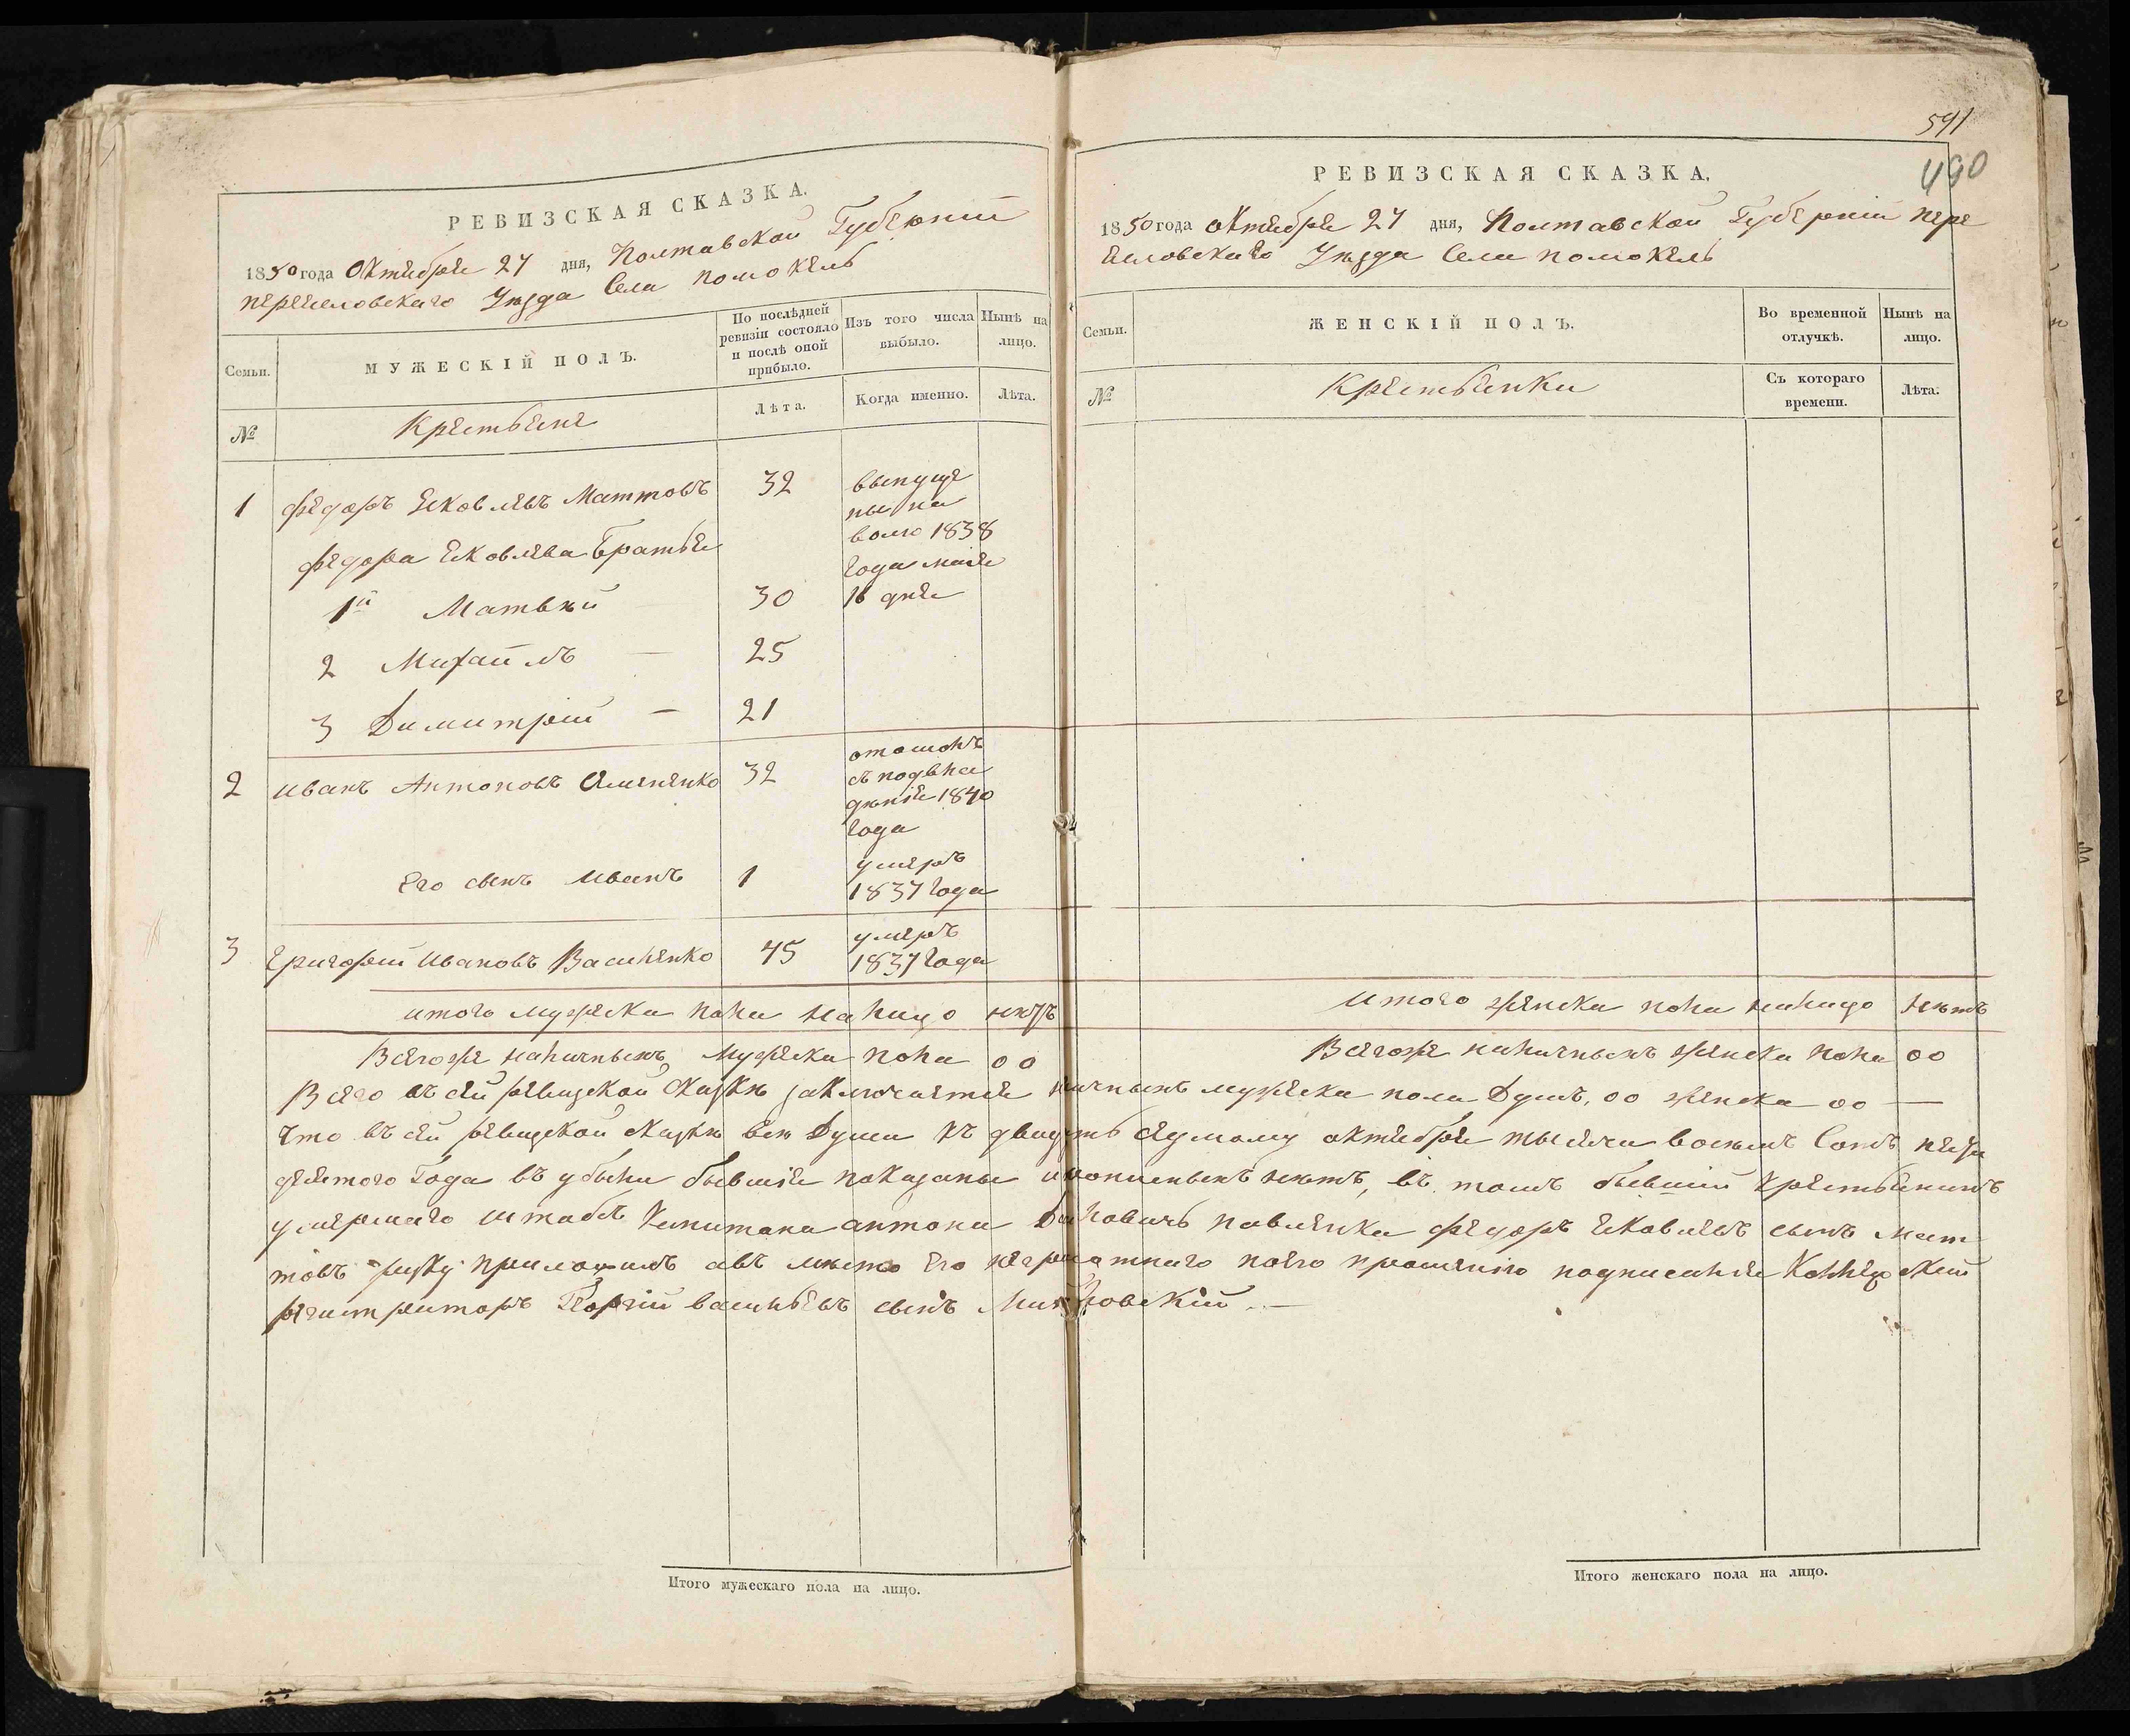 РЕВИЗСКАЯ СКАЗКА.
1850 года Октября 27 дня, Полтавской Губернии
переяславскаго Уезда Села помокель
Семьи.
МУЖЕСКІЙ ПОЛЪ.
По послѣдней ревизіи состояло и послѣ оной прибыло.
Изъ того числа выбыло.
Нынѣ на лицо.
№
Крестьяне
Лѣта.
Когда именно.
Лѣта.
1 Федоръ Яковлевъ Маттовъ 32 выпуще
ны на
волю 1838
года мая
16 дня
Федора Яковлева братья
1й Матвѣй 30
2 Михаилъ — 25
3 Димитрій — 21
2 Иванъ Антоновъ 32
1840
года
Его сынъ Иванъ 1 умеръ
1837 года
3 Григорій Ивановъ Василенко 45 умеръ
1837 года
итого мужеска пола на лицо нѣтъ
Всегоже наличныхъ мужеска пола 00
Итого мужескаго пола на лицо.
591
490
РЕВИЗСКАЯ СКАЗКА.
1850 года октября 27 дня, Полтавской Губерніи пере
яславскаго Уѣзда Села помокель
Семьи.
ЖЕНСКІЙ ПОЛЪ.
Во временной отлучкѣ.
Нынѣ на лицо.
№
Крестьянки
Съ котораго времени.
Лѣта.
Итого женска пола налицо нѣтъ
Всегоже наличныхъ женска пола 00
Всего въ сей ревизской сказкѣ заключается личныхъ мужеска пола Душъ, 00 женска 00 —
Что въ сей ревизской сказкѣ всѣ Души къ двадцать седмому октября тысяча восемъ Сотъ пятьи
десятого Года въ убыли бывшія показаны и нѣтъ, въ томъ бывшій крестьянинъ
умершаго штабсъ Капитана антона павленка федоръ Яковлевъ сынъ Мат
товъ руку приложилъ авъ мѣсто его неграмотнаго поего прошенію подписался Коллежскій
регистраторъ Георгій васильевъ сынъ
Итого женскаго пола на лицо.